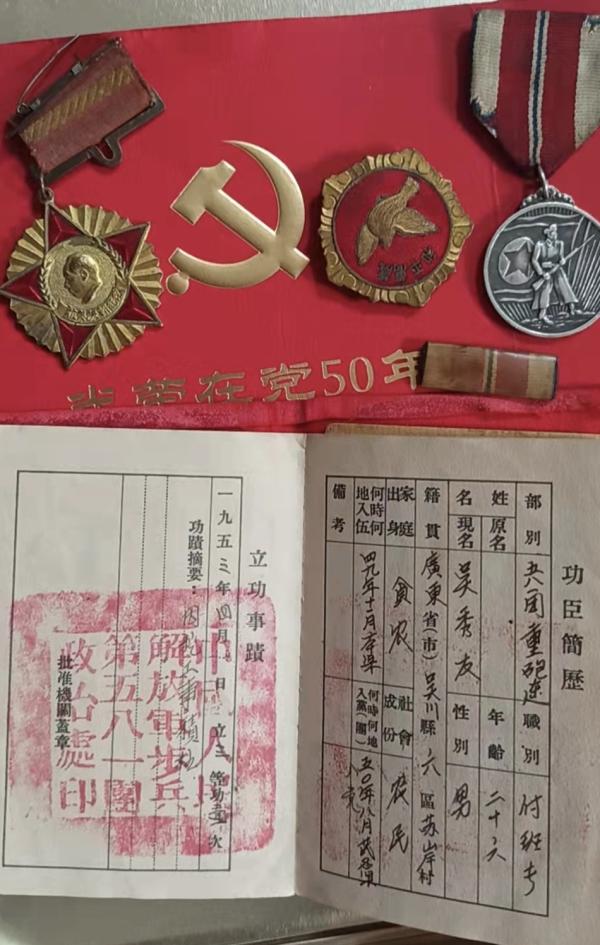 光荣在党50年
功臣簡歷
部別 五八一团重砲连 職別 付班长
姓名 原名 年齡 二十六
現名 吴秀友 性別 男
籍貫 廣東省(市)吴川縣六區苏岸村
家庭出身 貧农 社會成份 农民
何時何地入伍 四九年十二月 何時何地入黨(團) 五〇年八月 入党
備考
立功事蹟
一九五三年四月 日 立三等功壹次
功蹟摘要：因
批准機關蓋章
中國人民
解放軍步兵
第五八一團
政治處印